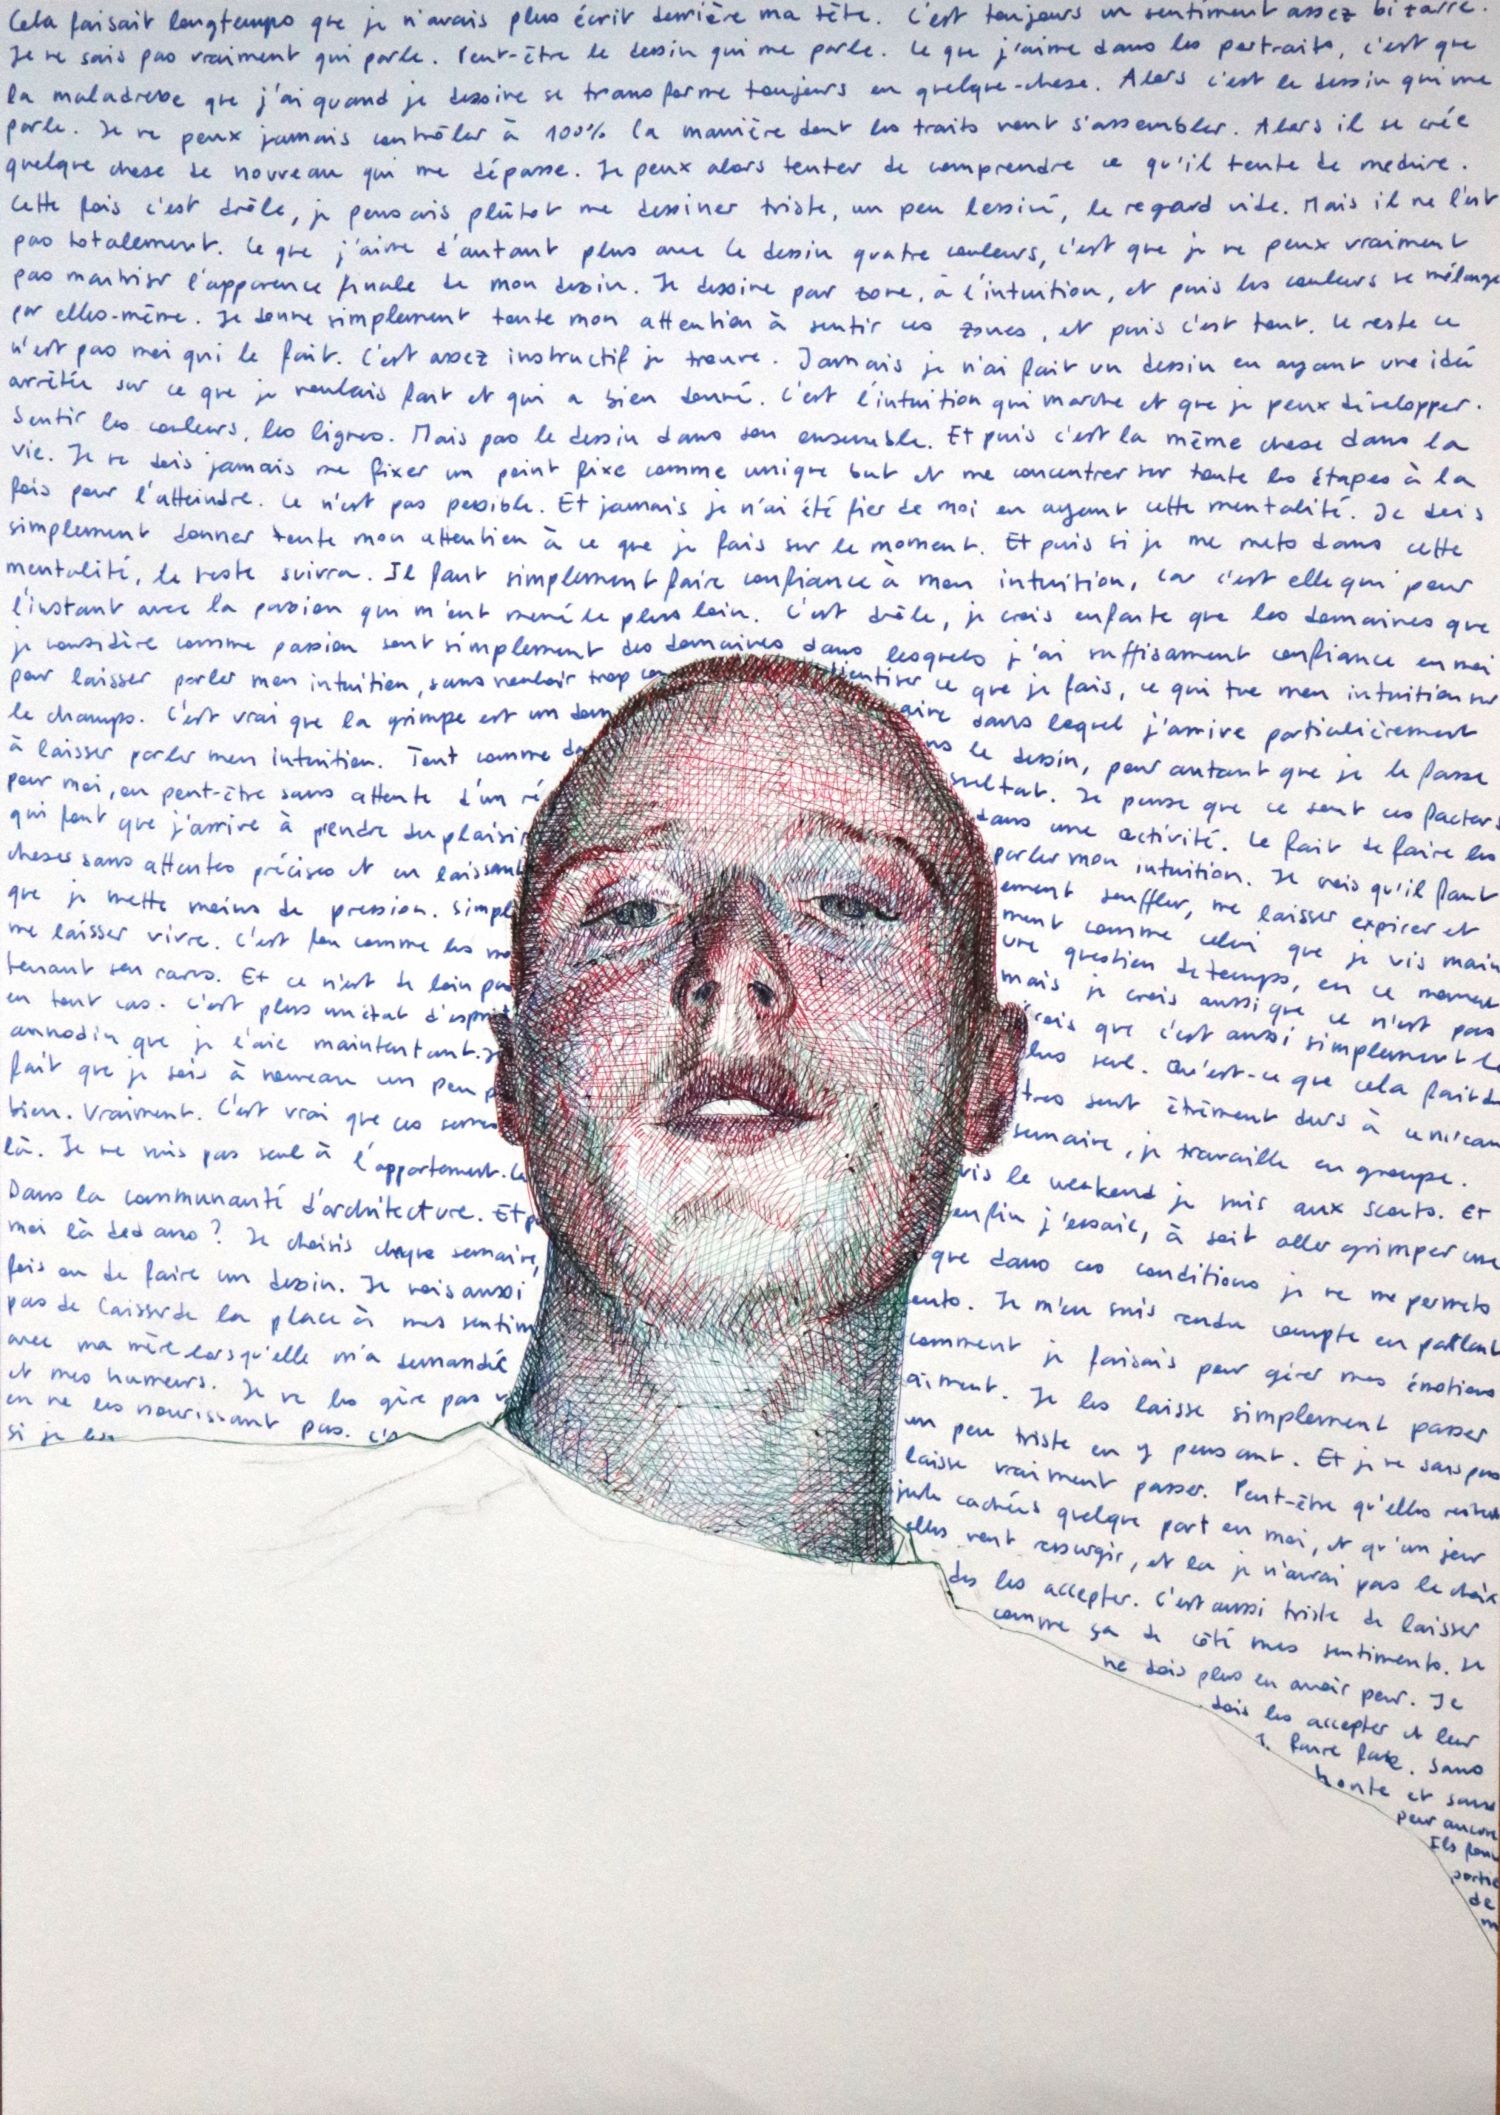 Cela faisait longtemps que je n'avais plus écrit derrière ma tête. C'est toujours un sentiment assez bizarre.
Je ne sais pas vraiment qui parle. Peut-être le dessin qui me parle. Ce que j'aime dans les portraits, c'est que
la maladresse que j'ai quand je dessine se transforme toujours en quelque-chose. Alors c'est le dessin qui me
parle. Je ne peux jamais contrôler à 100% la manière dont les traits vont s'assembler. Alors il se crée
quelque chose de nouveau qui me dépasse. Je peux alors tenter de comprendre ce qu'il tente de me dire.
Cette fois c'est drôle, je pensais plûtot me dessiner triste, un peu lessivé, le regard vide. Mais il ne l'est
pas totalement. Ce que j'aime d'autant plus avec le dessin quatre couleurs, c'est que je ne peux vraiment
pas maitriser l'apparence finale de mon dessin. Je dessine par zone, à l'intuition, et puis les couleurs se mélange
par elles-même. Je donne simplement toute mon attention à sentir ces zones, et puis c'est tout. Le reste ce
n'est pas moi qui le fait. C'est assez instructif je trouve. Jamais je n'ai fait un dessin en ayant une idée
arrêtée sur ce que je voulais fait et qui a bien donné. C'est l'intuition qui marche et que je peux développer.
Sentir les couleurs, les lignes. Mais pas le dessin dans son ensemble. Et puis c'est la même chose dans la
vie. Je ne dois jamais me fixer un point fixe comme unique but et me concentrer sur toute les étapes à la
fois pour l'atteindre. Ce n'est pas possible. Et jamais je n'ai été fier de moi en ayant cette mentalité. Je dois
simplement donner toute mon attention à ce que je fais sur le moment. Et puis si je me mets dans cette
mentalité, le reste suivra. Il faut simplement faire confiance à mon intuition, car c'est elle qui pour
l'instant avec la passion qui m'ont mené le plus loin. C'est drôle, je crois enfaite que les domaines que
je considère comme passion sont simplement des domaines dans lesquels j'ai suffisament confiance en moi
pour laisser parler mon intuition, sans vouloir trop con ientiser ce que je fais, ce qui tue mon intuition sur
le champs. C'est vrai que la grimpe est un dom aine dans lequel j'arrive particulièrement
à laisser parler mon intuition. Tout comme da ns le dessin, pour autant que je le fasse
pour moi, ou peut-être sans attente d'un ré sultat. Je pense que ce sont ces facteurs
qui font que j'arrive à prendre du plaisir dans une activité. Le fait de faire les
choses sans attentes précises et en laissant parler mon intuition. Je vois qu'il faut
que je mette moins de pression. Simpl ement souffler, me laisser expirer et
me laisser vivre. C'est fou comme les mo ment comme celui que je vis main
tenant sen rares. Et ce n'est de loin pas une question de temps, en ce moment
en tout cas. C'est plus un état d'esprit mais je crois aussi que ce n'est pas
annodin que je l'aie maintentant. Je crois que c'est aussi simplement le
fait que je sois à nouveau un peu p lus seul. Qu'est-ce que cela fait du
bien. Vraiment. C'est vrai que ces semes tres sont êtrêment durs à ce niveau
là. Je ne suis pas seul à l'appartement. La semaine, je travaille en groupe.
Dans la communauté d'architecture. Et p uis le weekend je suis aux Scouts. Et
moi là dedans ? Je choisis chaque semaine, enfin j'essaie, à soit aller grimper une
fois ou de faire un dessin. Je vois aussi que dans ces conditions je ne me permets
pas de laisser de la place à mes sentim ents. Je m'en suis rendu compte en parlant
avec ma mère lorsqu'elle m'a demandé comment je faisais pour gérer mes émotions
et mes humeurs. Je ne les gère pas v raiment. Je les laisse simplement passer
en ne les nourissant pas. C'e un peu triste en y pensant. Et je ne sais pas
si je les laisse vraiment passer. Peut-être qu'elles restent
juste cachées quelque part en moi, et qu'un jour
elles vont ressurgir, et la je n'aurai pas le choix
des les accepter. C'est aussi triste de laisser
comme ça de côté mes sentiments. Je
ne dois plus en avoir peur. Je
dois les accepter et leur
faire face. Sans
honte et sans
peur aucune
Ils font
partie
de
m